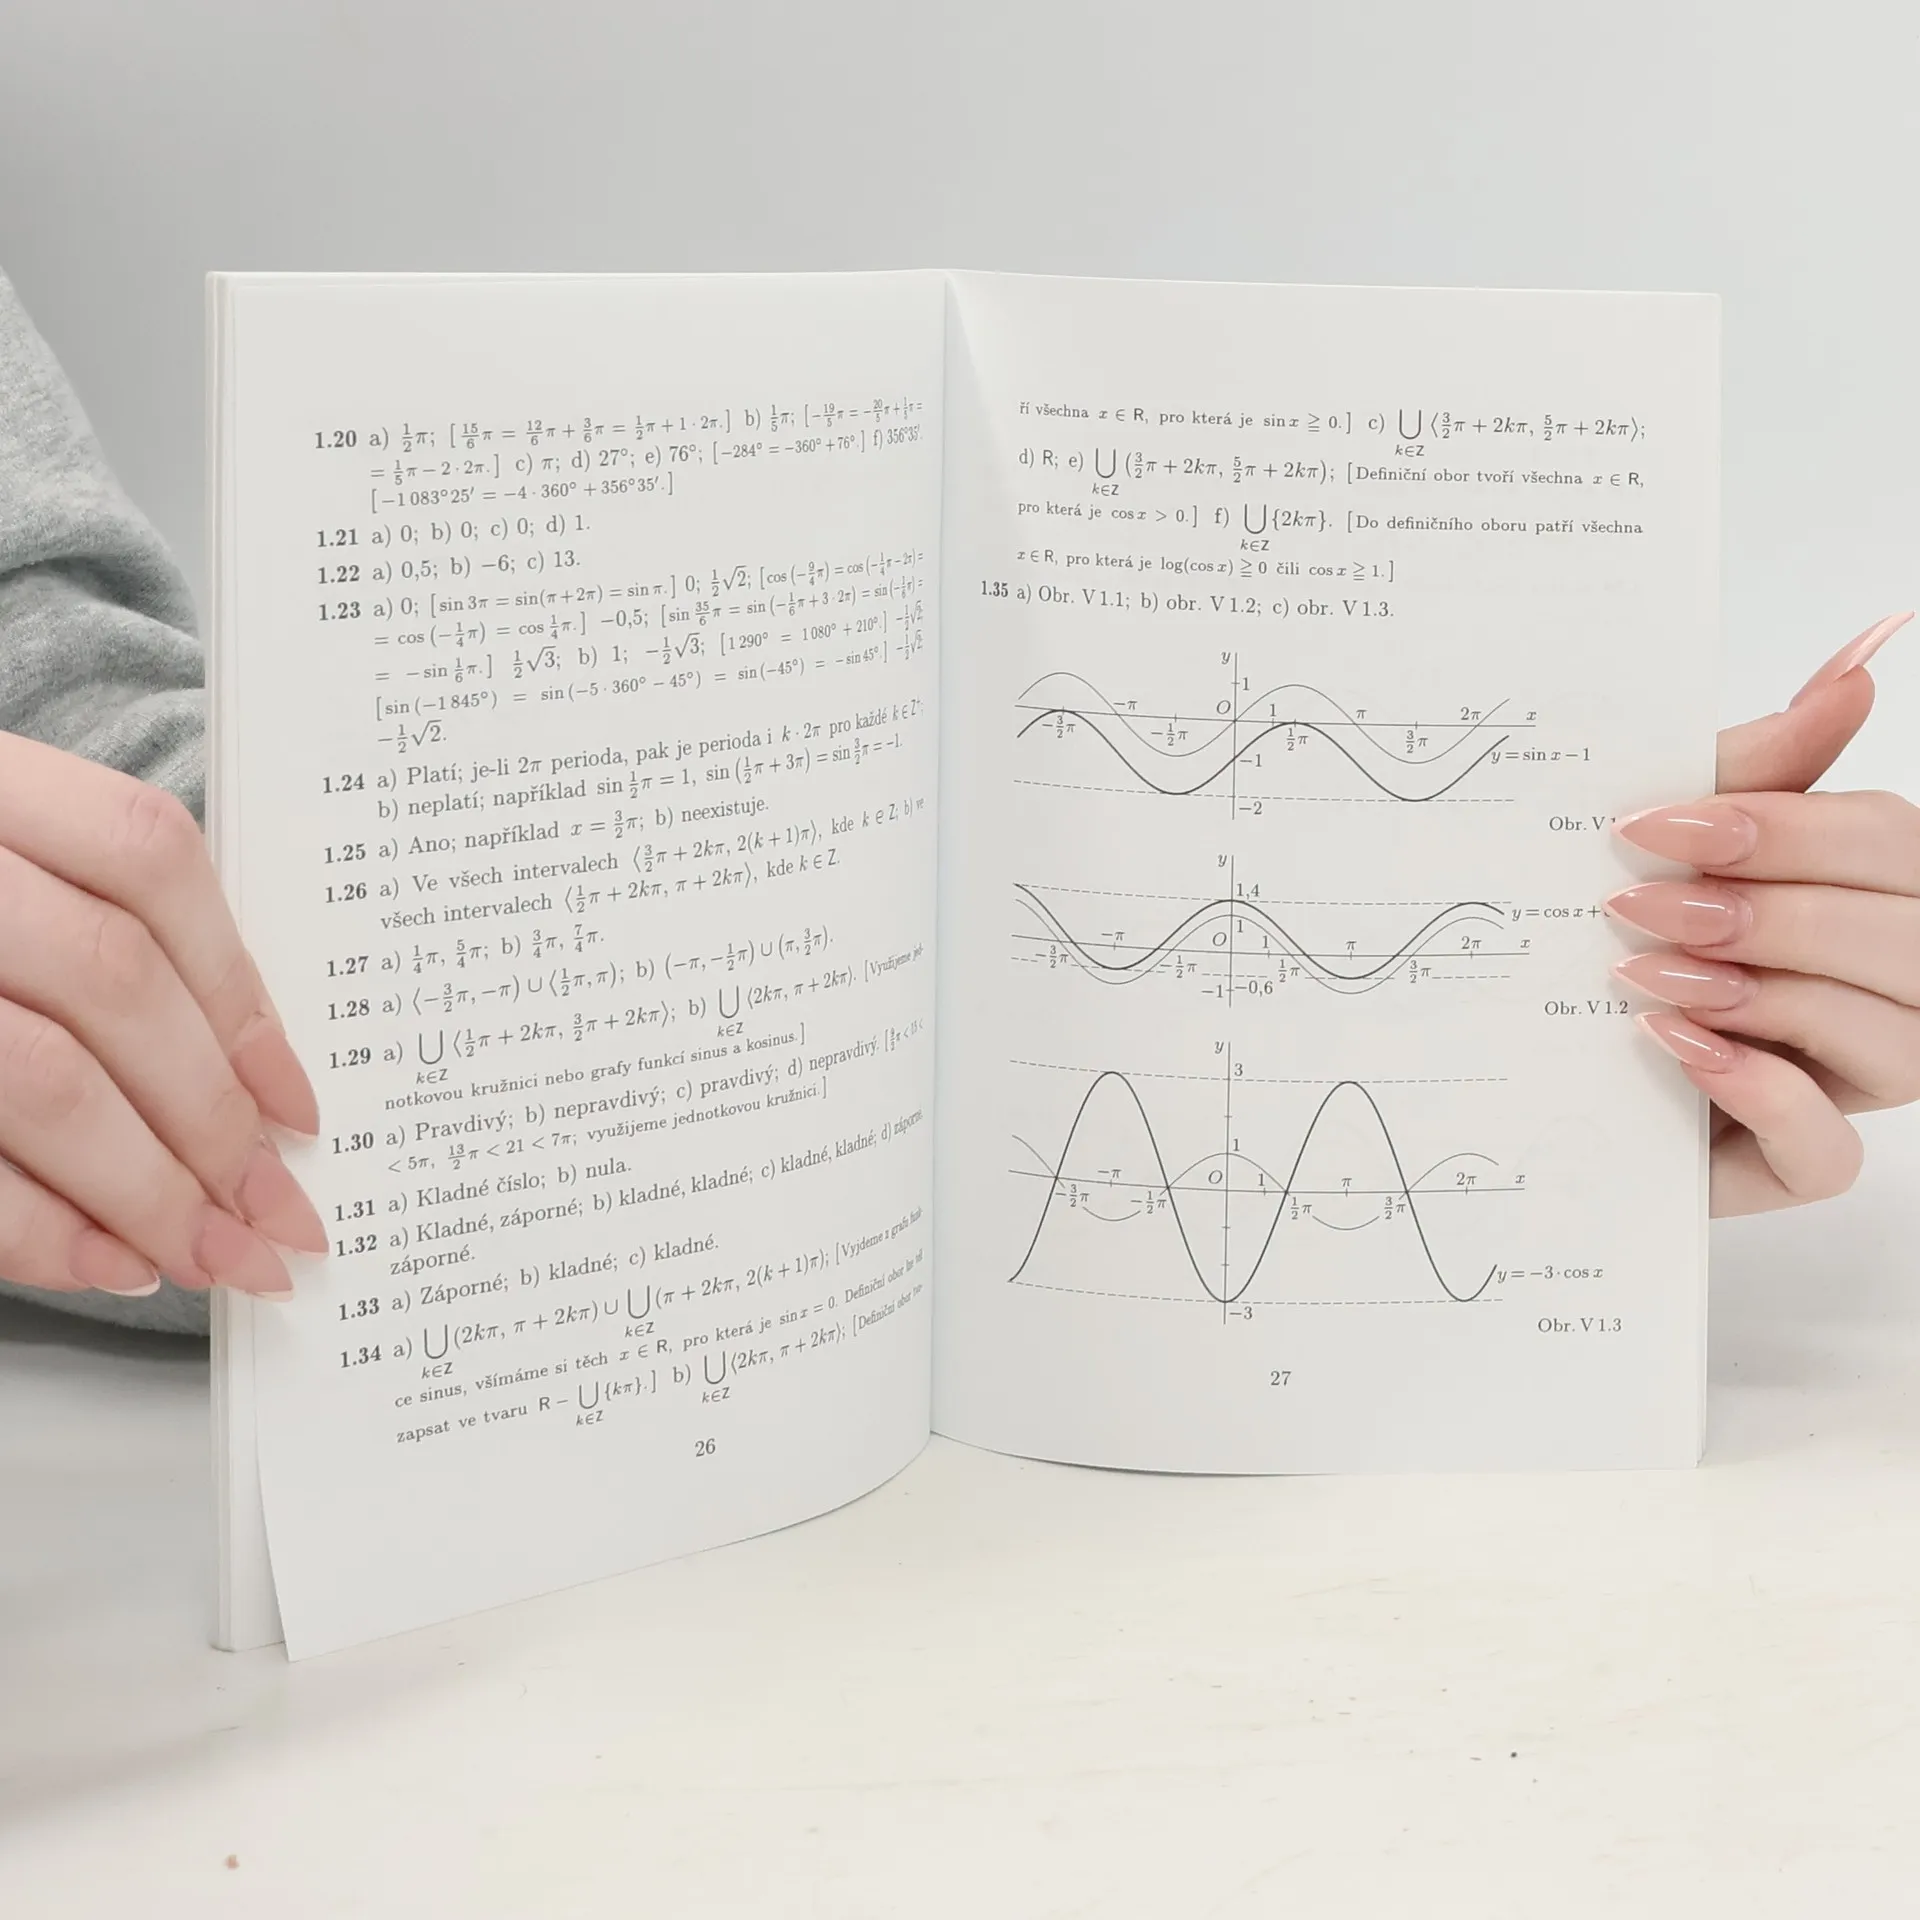 1.20 a) ½π; [15/6π = 12/6π + 3/6π = ½π + 1 · 2π.] b) 1/5π; [−19/5π = −20/5π + 1/5π =
= 1/5π − 2 · 2π.] c) π; d) 27°; e) 76°; [−284° = −360° + 76°.] f) 356°35′.
[−1 083°25′ = −4 · 360° + 356°35′.]
1.21 a) 0; b) 0; c) 0; d) 1.
1.22 a) 0,5; b) −6; c) 13.
1.23 a) 0; [sin 3π = sin(π+2π) = sin π.] 0; ½√2; [cos (−9/4π) = cos (−¼π − 2π) =
= cos (−¼π) = cos ¼π.] −0,5; [sin 35/6π = sin (−1/6π + 3 · 2π) = sin (−1/6π) =
= − sin 1/6π.] ½√3; b) 1; −½√3; [1 290° = 1 080° + 210°.] −½√2;
[sin (−1 845°) = sin (−5 · 360° − 45°) = sin (−45°) = − sin 45°.] −½√2;
−½√2.
1.24 a) Platí; je-li 2π perioda, pak je perioda i k · 2π pro každé k ∈ Z⁺;
b) neplatí; například sin ½π = 1, sin (½π + 3π) = sin 3/2π = −1.
1.25 a) Ano; například x = 3/2π; b) neexistuje.
1.26 a) Ve všech intervalech ⟨3/2π + 2kπ, 2(k + 1)π⟩, kde k ∈ Z; b) ve
všech intervalech ⟨½π + 2kπ, π + 2kπ⟩, kde k ∈ Z.
1.27 a) ¼π, 5/4π; b) ¾π, 7/4π.
1.28 a) ⟨−3/2π, −π) ∪ ⟨½π, π); b) (−π, −½π) ∪ (π, 3/2π).
1.29 a) ⋃ ⟨½π + 2kπ, 3/2π + 2kπ⟩; b) ⋃ ⟨2kπ, π + 2kπ⟩. [Využijeme jed-
k∈Z k∈Z
notkovou kružnici nebo grafy funkcí sinus a kosinus.]
1.30 a) Pravdivý; b) nepravdivý; c) pravdivý; d) nepravdivý.
< 5π, 13/2π < 21 < 7π; využijeme jednotkovou kružnici.]
1.31 a) Kladné číslo; b) nula.
1.32 a) Kladné, záporné; b) kladné, kladné; c) kladné, kladné; d) záporné,
záporné.
1.33 a) Záporné; b) kladné; c) kladné.
1.34 a) ⋃ (2kπ, π + 2kπ) ∪ ⋃ (π + 2kπ, 2(k + 1)π); [Vyjdeme z grafu funk-
k∈Z k∈Z
ce sinus, všímáme si těch x ∈ R, pro která je sin x = 0. Definiční obor lze též
zapsat ve tvaru R − ⋃ {kπ}.] b) ⋃ ⟨2kπ, π + 2kπ⟩; [Definiční obor tvo-
k∈Z k∈Z
26
ří všechna x ∈ R, pro která je sin x ≧ 0.] c) ⋃ ⟨3/2π + 2kπ, 5/2π + 2kπ⟩;
k∈Z
d) R; e) ⋃ (3/2π + 2kπ, 5/2π + 2kπ); [Definiční obor tvoří všechna x ∈ R,
k∈Z
pro která je cos x > 0.] f) ⋃ {2kπ}. [Do definičního oboru patří všechna
k∈Z
x ∈ R, pro která je log(cos x) ≧ 0 čili cos x ≧ 1.]
1.35 a) Obr. V 1.1; b) obr. V 1.2; c) obr. V 1.3.
y
1
−π O 1 π 2π x
−3/2π −½π ½π 3/2π
y = sin x − 1
−1
−2
Obr. V
y
1,4
y = cos x +
1
−π O 1 π 2π x
−3/2π −½π ½π 3/2π
−1 −0,6
Obr. V 1.2
y
3
1
−π O 1 π 2π x
−3/2π −½π ½π 3/2π
y = −3 · cos x
−3
Obr. V 1.3
27